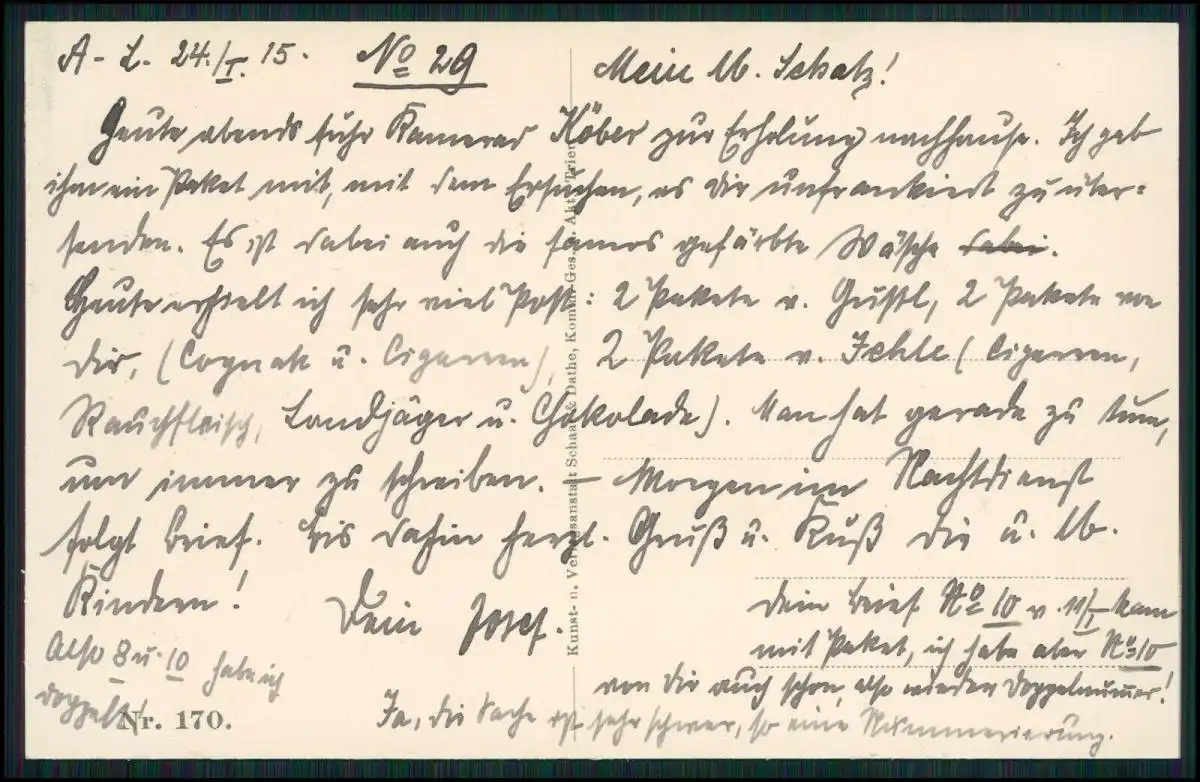 A - L. 24./I. 15. No 29
Mein lb. Schatz!
Heute abends fuhr Kamerad Köber zur Erholung nachhause. Ich gab
ihm ein Paket mit, mit dem Ersuchen, es dir unfrankiert zu über-
senden. Es ist dabei auch die famos gefärbte Wäsche dabei.
Heute erhielt ich sehr viel Post: 2 Pakete v. Gustl, 2 Pakete von
dir, (Cognak u. Cigarren), 2 Pakete v. Ichle (Cigarren,
Rauchfleisch, Landjäger u. Chokolade). Man hat gerade zu tun,
um immer zu schreiben. – Morgen im Nachtdienst
folgt Brief. Bis dahin herzl. Gruß u. Kuß dir u. lb.
Kindern! Dein Josef.
Dein Brief No 10 v. 11/I kam
mit Paket, ich habe aber No 10
von dir auch schon, also wieder Doppelnummer!
Also 8 u. 10 habe ich
doppelt!
Ja, die Sache ist sehr schwer, so eine Nummerierung.
Nr. 170.
Kunst- u. Verlagsanstalt Schaar & Dathe, Komm.-Ges. a. Akt., Trier